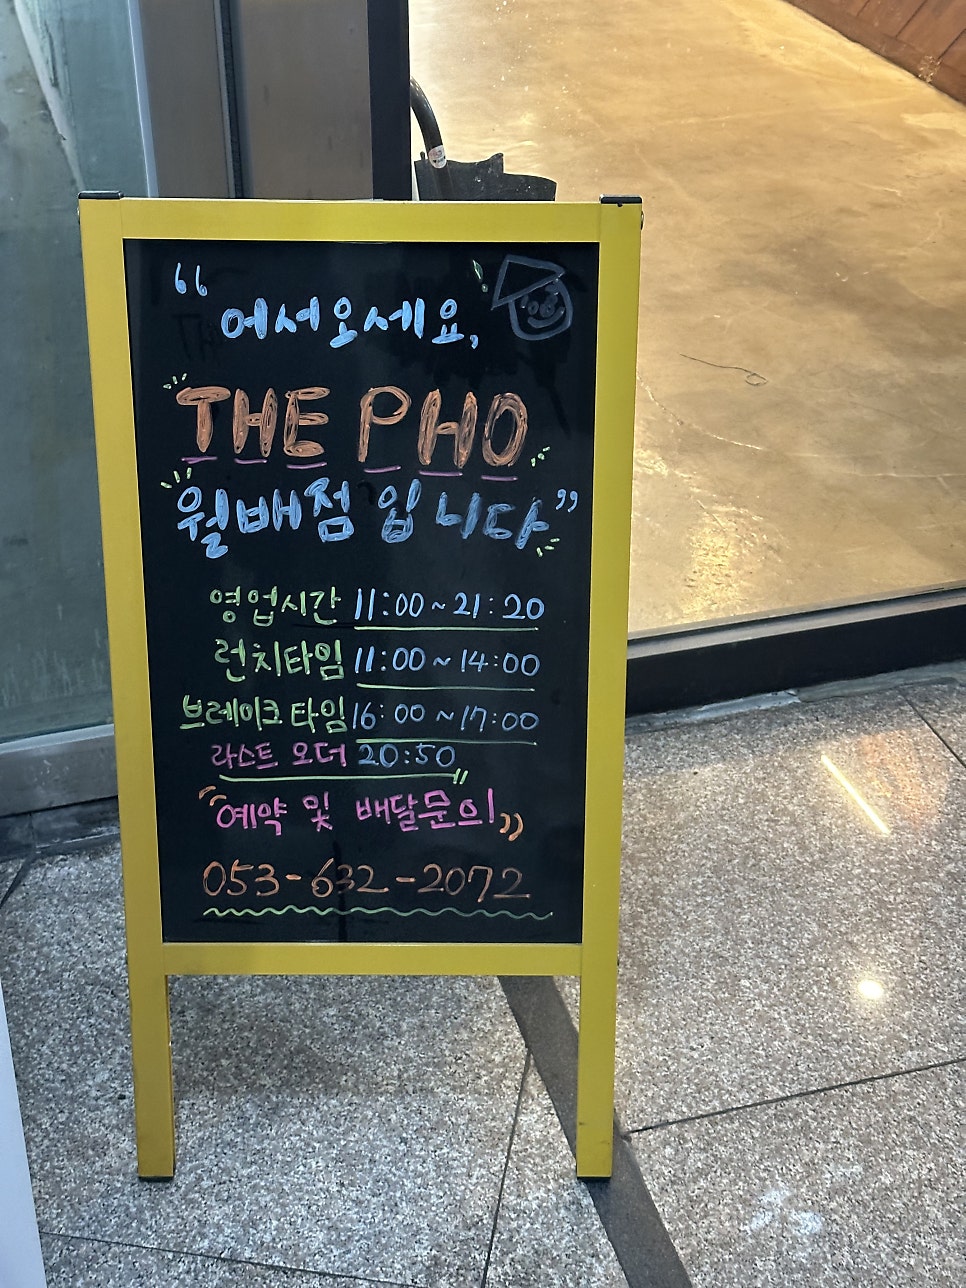 “어서오세요,
THE PHO
월배점 입니다”
영업시간 11:00~21:20
런치타임 11:00~14:00
브레이크 타임 16:00~17:00
라스트 오더 20:50
“예약 및 배달문의”
053-632-2072